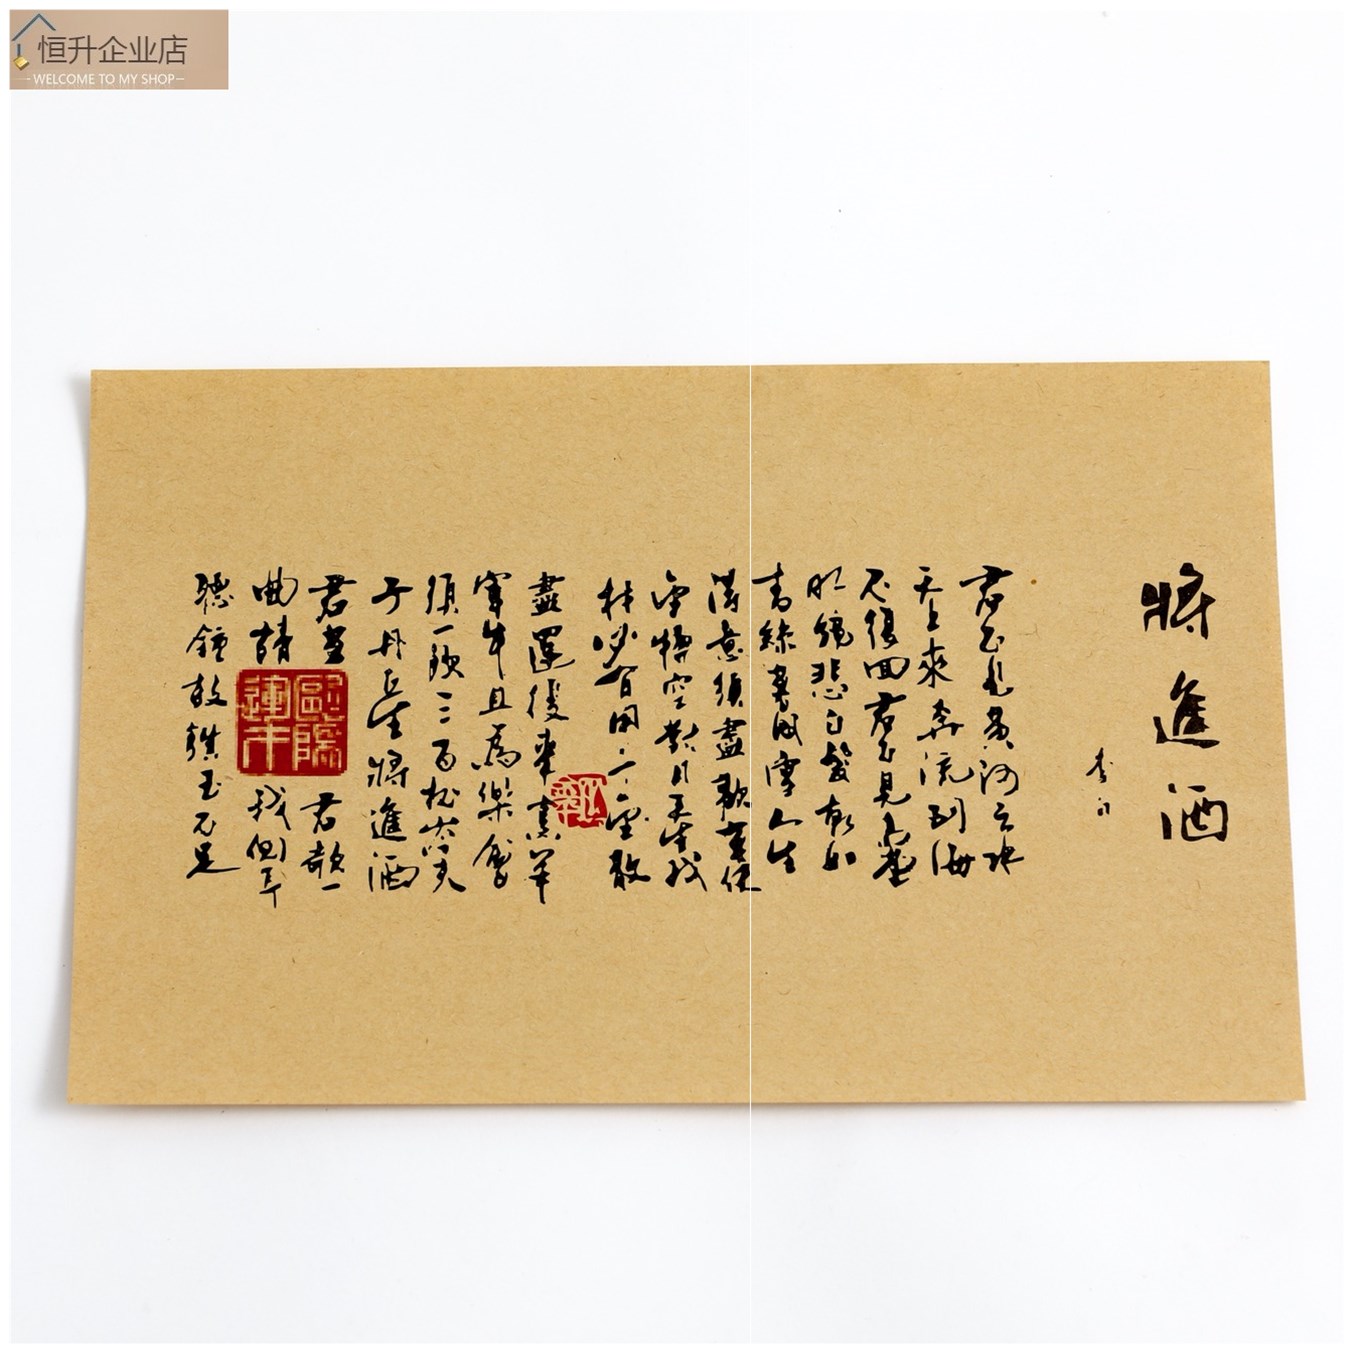 恒升企业店
WELCOME TO MY SHOP
將進酒
李白
君不見黃河之水
天上來奔流到海
不復回君不見高堂
明鏡悲白髮朝如
青絲暮成雪人生
得意須盡歡莫使
金樽空對月天生我
材必有用千金散
盡還復來烹羊
宰牛且為樂會
須一飲三百杯岑夫
子丹丘生將進酒
君莫 君歌一
曲請 我側耳
聽鐘鼓饌玉不足